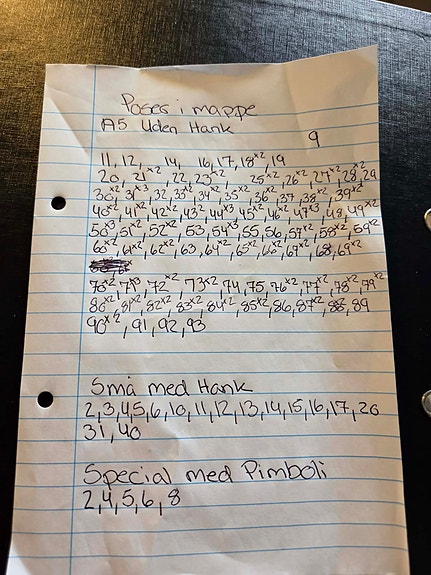 Poser i mappe
A5 Uden Hank
9
11, 12, 14, 16, 17, 18x2, 19
20, 21x2, 22, 23x2, 25x2, 26x2, 27x2, 28, 29
30x2, 31x3, 32, 33x2, 34x2, 35x2, 36x2, 37, 38x2, 39x2
40x2, 41x2, 42x2, 43x2, 44x3, 45x2, 46x2, 47x3, 48, 49x2
50x3, 51x2, 52x2, 53, 54x3, 55, 56, 57x2, 58x2, 59x2
60x2, 61x2, 62x2, 63, 64x2, 65x2, 66x2, 67x2, 68, 69x2
70x2, 71x3, 72x2, 73x2, 74, 75, 76x2, 77x2, 78x2, 79x2
80x2, 81x2, 82x2, 83x2, 84x2, 85x2, 86, 87x2, 88, 89
90x2, 91, 92, 93
Små med Hank
2, 3, 4, 5, 6, 10, 11, 12, 13, 14, 15, 16, 17, 20
31, 40
Special med Pimboli
2, 4, 5, 6, 8